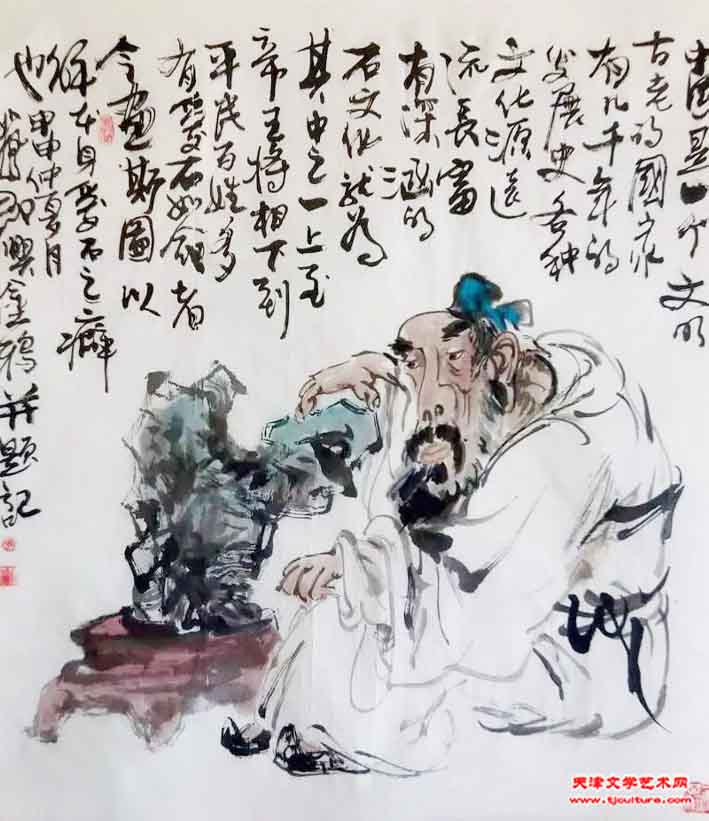 中國是一个文明
古老的國家
有几千年的
发展史各种
文化源远
流長富
有深涵的
石文化就为
其中之一上至
帝王将相下到
平民百姓多
有爱石如命者
今画斯圖以
解本身爱石之癖
也甲申仲夏月
即興金鸿并题記
天津文学艺术网
www.tjculture.com